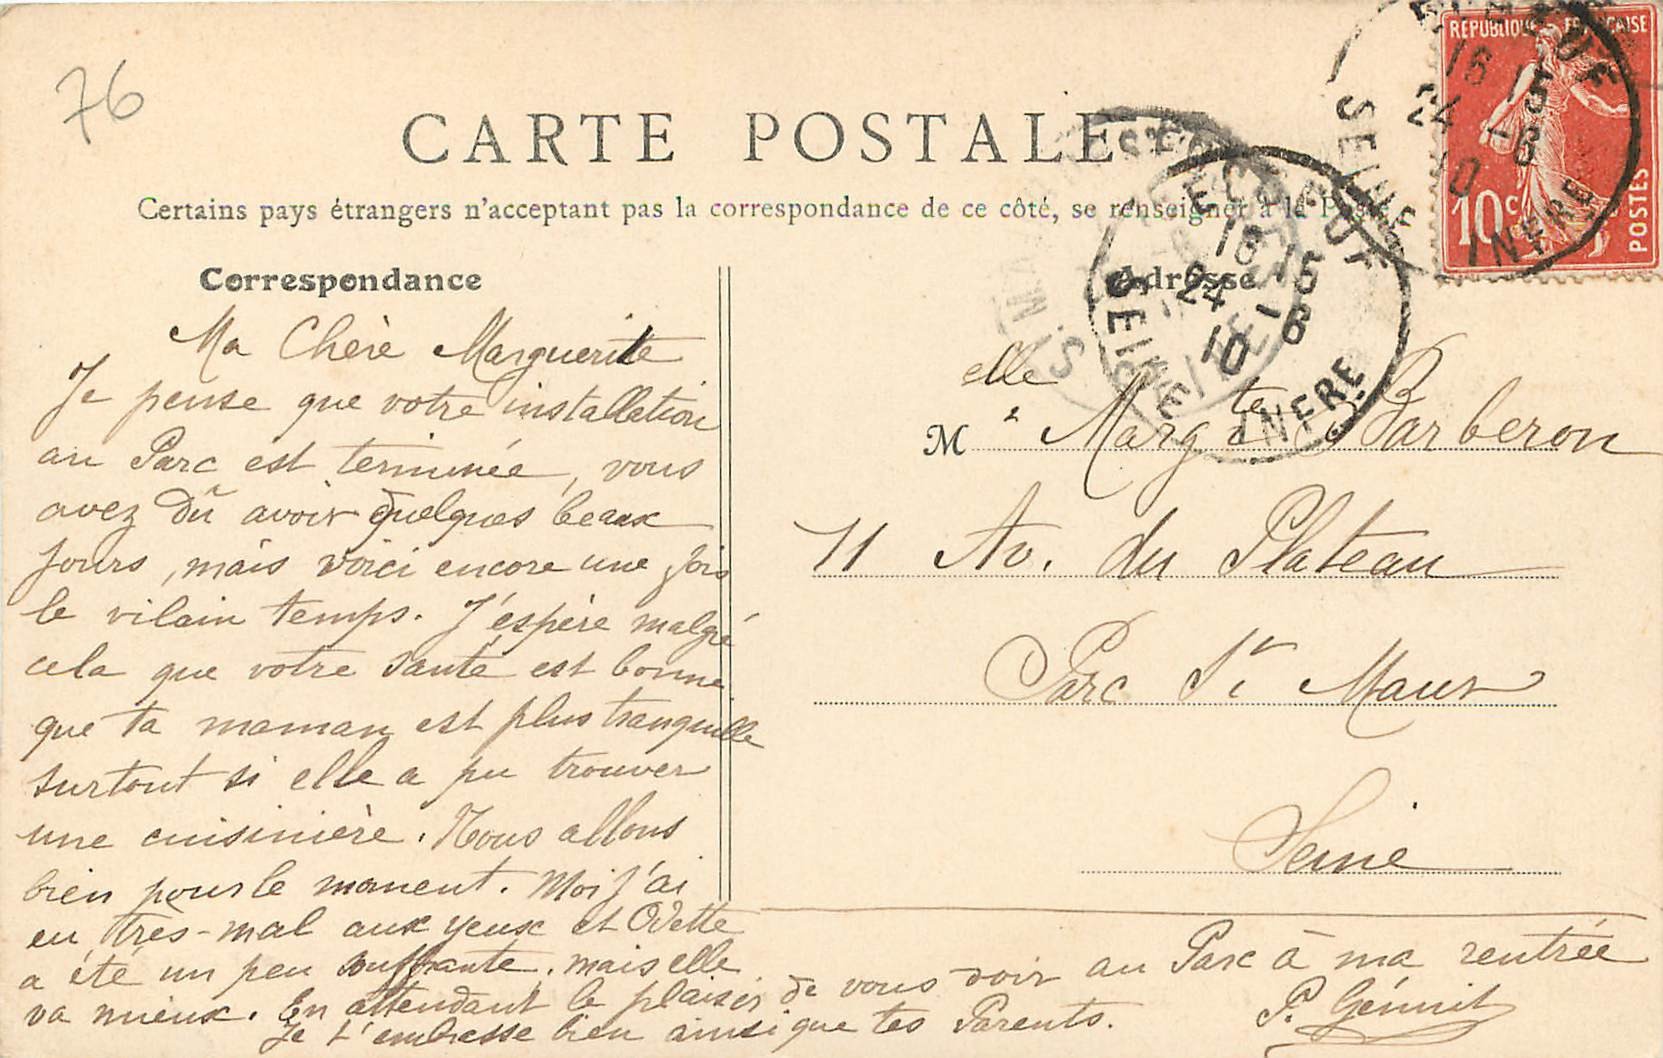 76
CARTE POSTALE
Certains pays étrangers n'acceptent pas la correspondance de ce côté, se renseigner à la Poste
Correspondance
Ma Chère Marguerite
Je pense que votre installation
au Parc est terminée, vous
avez dû avoir quelques beaux
jours, mais voici encore une fois
le vilain temps. J'espère malgré
cela que votre santé est bonne
que ta maman est plus tranquille
surtout si elle a pu trouver
une cuisinière. Nous allons
bien pour le moment. Moi j'ai
eu très-mal aux yeux et Odette
a été un peu souffrante, mais elle
va mieux. En attendant le plaisir de vous voir au Parc à ma rentrée
Je t'embrasse bien ainsi que tes Parents.
Adresse
Melle Margte Barberon
11 Av. du Plateau
Parc St Maur
Seine
REPUBLIQUE FRANÇAISE
10c
POSTES
SEINE INFRE
16 15
24 -6
10
SEINE INFRE
16 15
24 -6
10